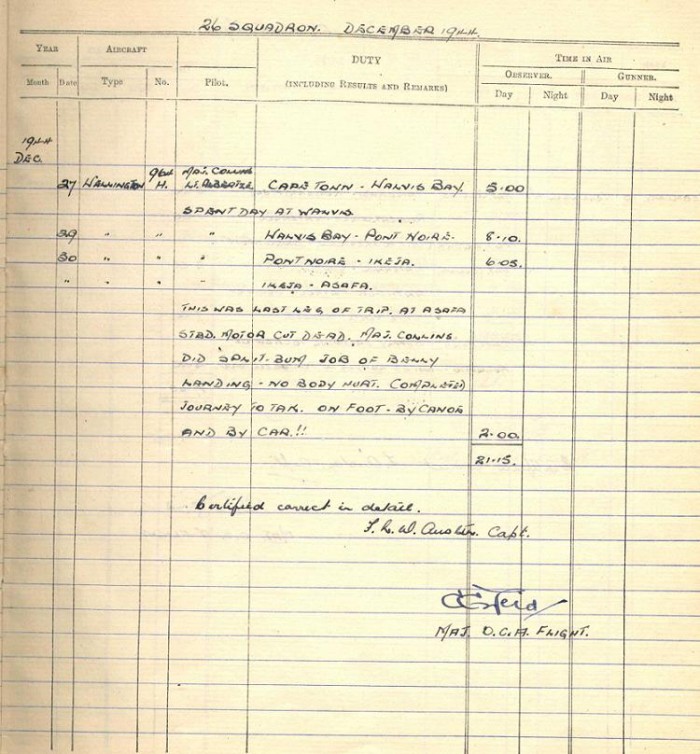 26 SQUADRON. DECEMBER 1944.
YEAR AIRCRAFT DUTY TIME IN AIR
OBSERVER. GUNNER.
Month Date Type No. Pilot. (INCLUDING RESULTS AND REMARKS) Day Night Day Night
1944
DEC.
MAJ. COLLINS
27 WELLINGTON H. LT. CAPE TOWN - WALVIS BAY. 5.00
SPENT DAY AT WALVIS
29 " " " WALVIS BAY - PONT NOIRE. 8.10.
30 " " " PONT NOIRE - IKEJA. 6.05.
" " " " IKEJA - ASAFA.
THIS WAS LAST LEG OF TRIP. AT ASAFA
STBD. MOTOR CUT DEAD. MAJ. COLLINS
DID SPLIT-BUM JOB OF BELLY
LANDING - NO BODY HURT. COMPLETED
JOURNEY TO TAK. ON FOOT - BY CANOE
AND BY CAR.!! 2.00.
21.15.
Certified correct in detail.
F. L. W. Austin. Capt.
MAJ. O.C.A. FLIGHT.